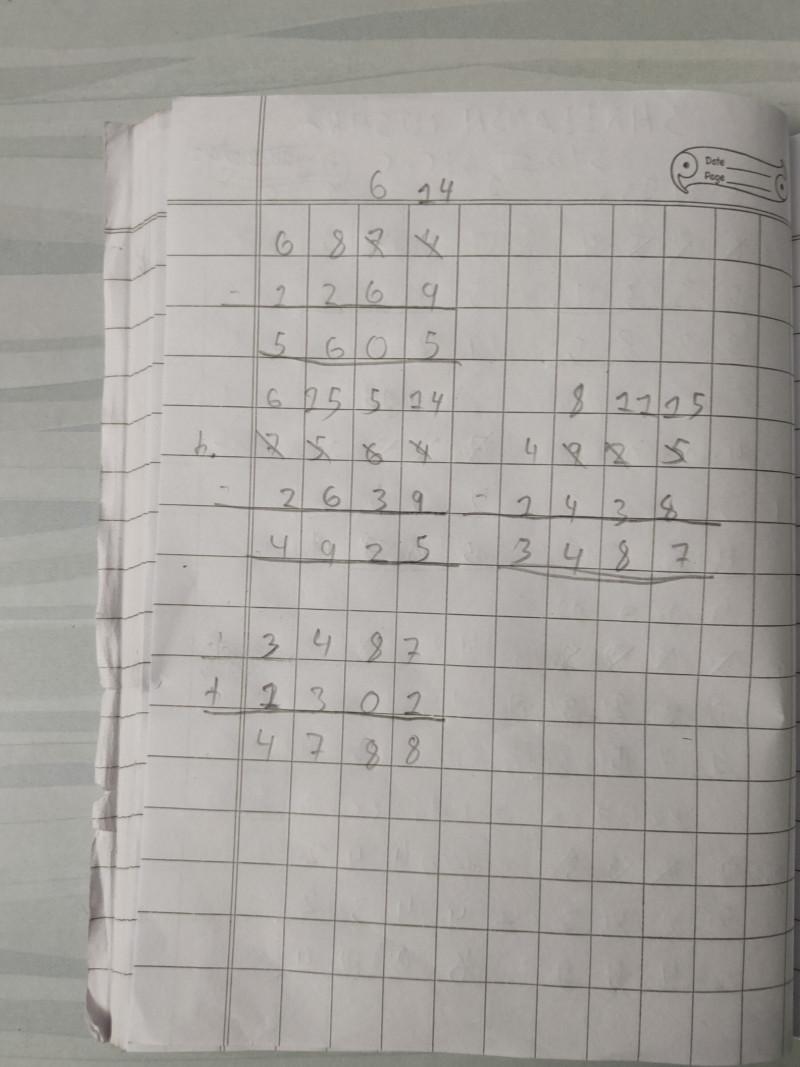 Date
Page
6 14
6 8 7 4
- 1 2 6 9
5 6 0 5
6 15 5 14 8 11 15
b. 7 5 6 4 4 9 2 5
- 2 6 3 9 - 1 4 3 8
4 9 2 5 3 4 8 7
+ 3 4 8 7
+ 1 3 0 1
4 7 8 8